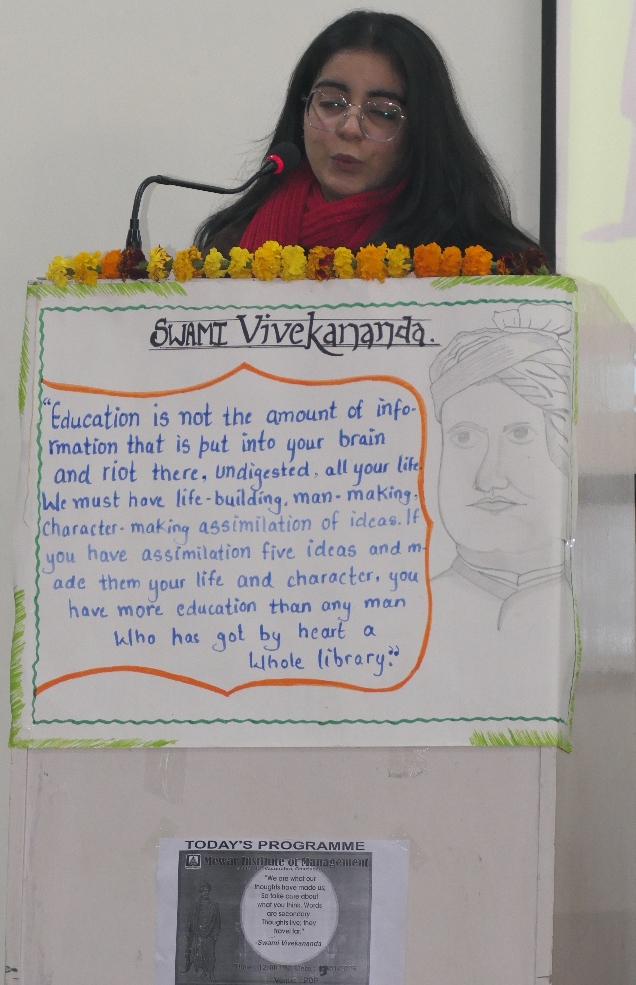 SWAMI Vivekananda.
"Education is not the amount of info-
rmation that is put into your brain
and riot there, undigested, all your life.
We must have life-building, man-making,
character-making assimilation of ideas. If
you have assimilation five ideas and m-
ade them your life and character, you
have more education than any man
Who has got by heart a
Whole library."
TODAY'S PROGRAMME
Mewar Institute of Management
"We are what our
thoughts have made us;
So take care about
what you think. Words
are secondary.
Thoughts live; they
travel far."
-Swami Vivekananda